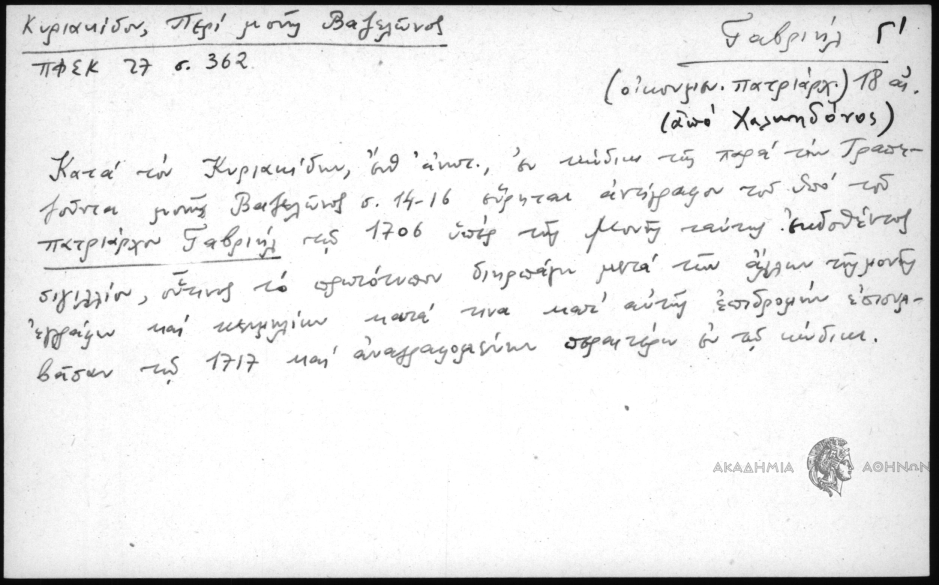 Κυριακίδου, Περί μονῆς Βαζελῶνος
ΠΦΣΚ 27 σ. 362
Γαβριήλ Γ'
(οἰκουμεν. πατριάρχ.) 18 αἰ.
(ἀπό Χαλκηδόνος)
Κατά τόν Κυριακίδην, ἔνθ' ἀνωτ., ἐν κώδικι τῆς παρά τήν Τραπε-
ζοῦντα μονῆς Βαζελῶνος σ. 14-16 εὕρηται ἀντίγραφον τοῦ ὑπό τοῦ
πατριάρχου Γαβριήλ τῷ 1706 ὑπέρ τῆς Μονῆς ταύτης ἐκδοθέντος
σιγιλλίου, οὗτινος τό πρωτότυπον διηρπάγη μετά τῶν ἄλλων τῆς μονῆς
ἐγγράφων καί κειμηλίων κατά τινα κατ' αὐτῆς ἐπιδρομήν ἐπισυμ-
βᾶσαν τῷ 1717 καί ἀναγραφομένην περαιτέρω ἐν τῷ κώδικι.
ΑΚΑΔΗΜΙΑ ΑΘΗΝΩΝ